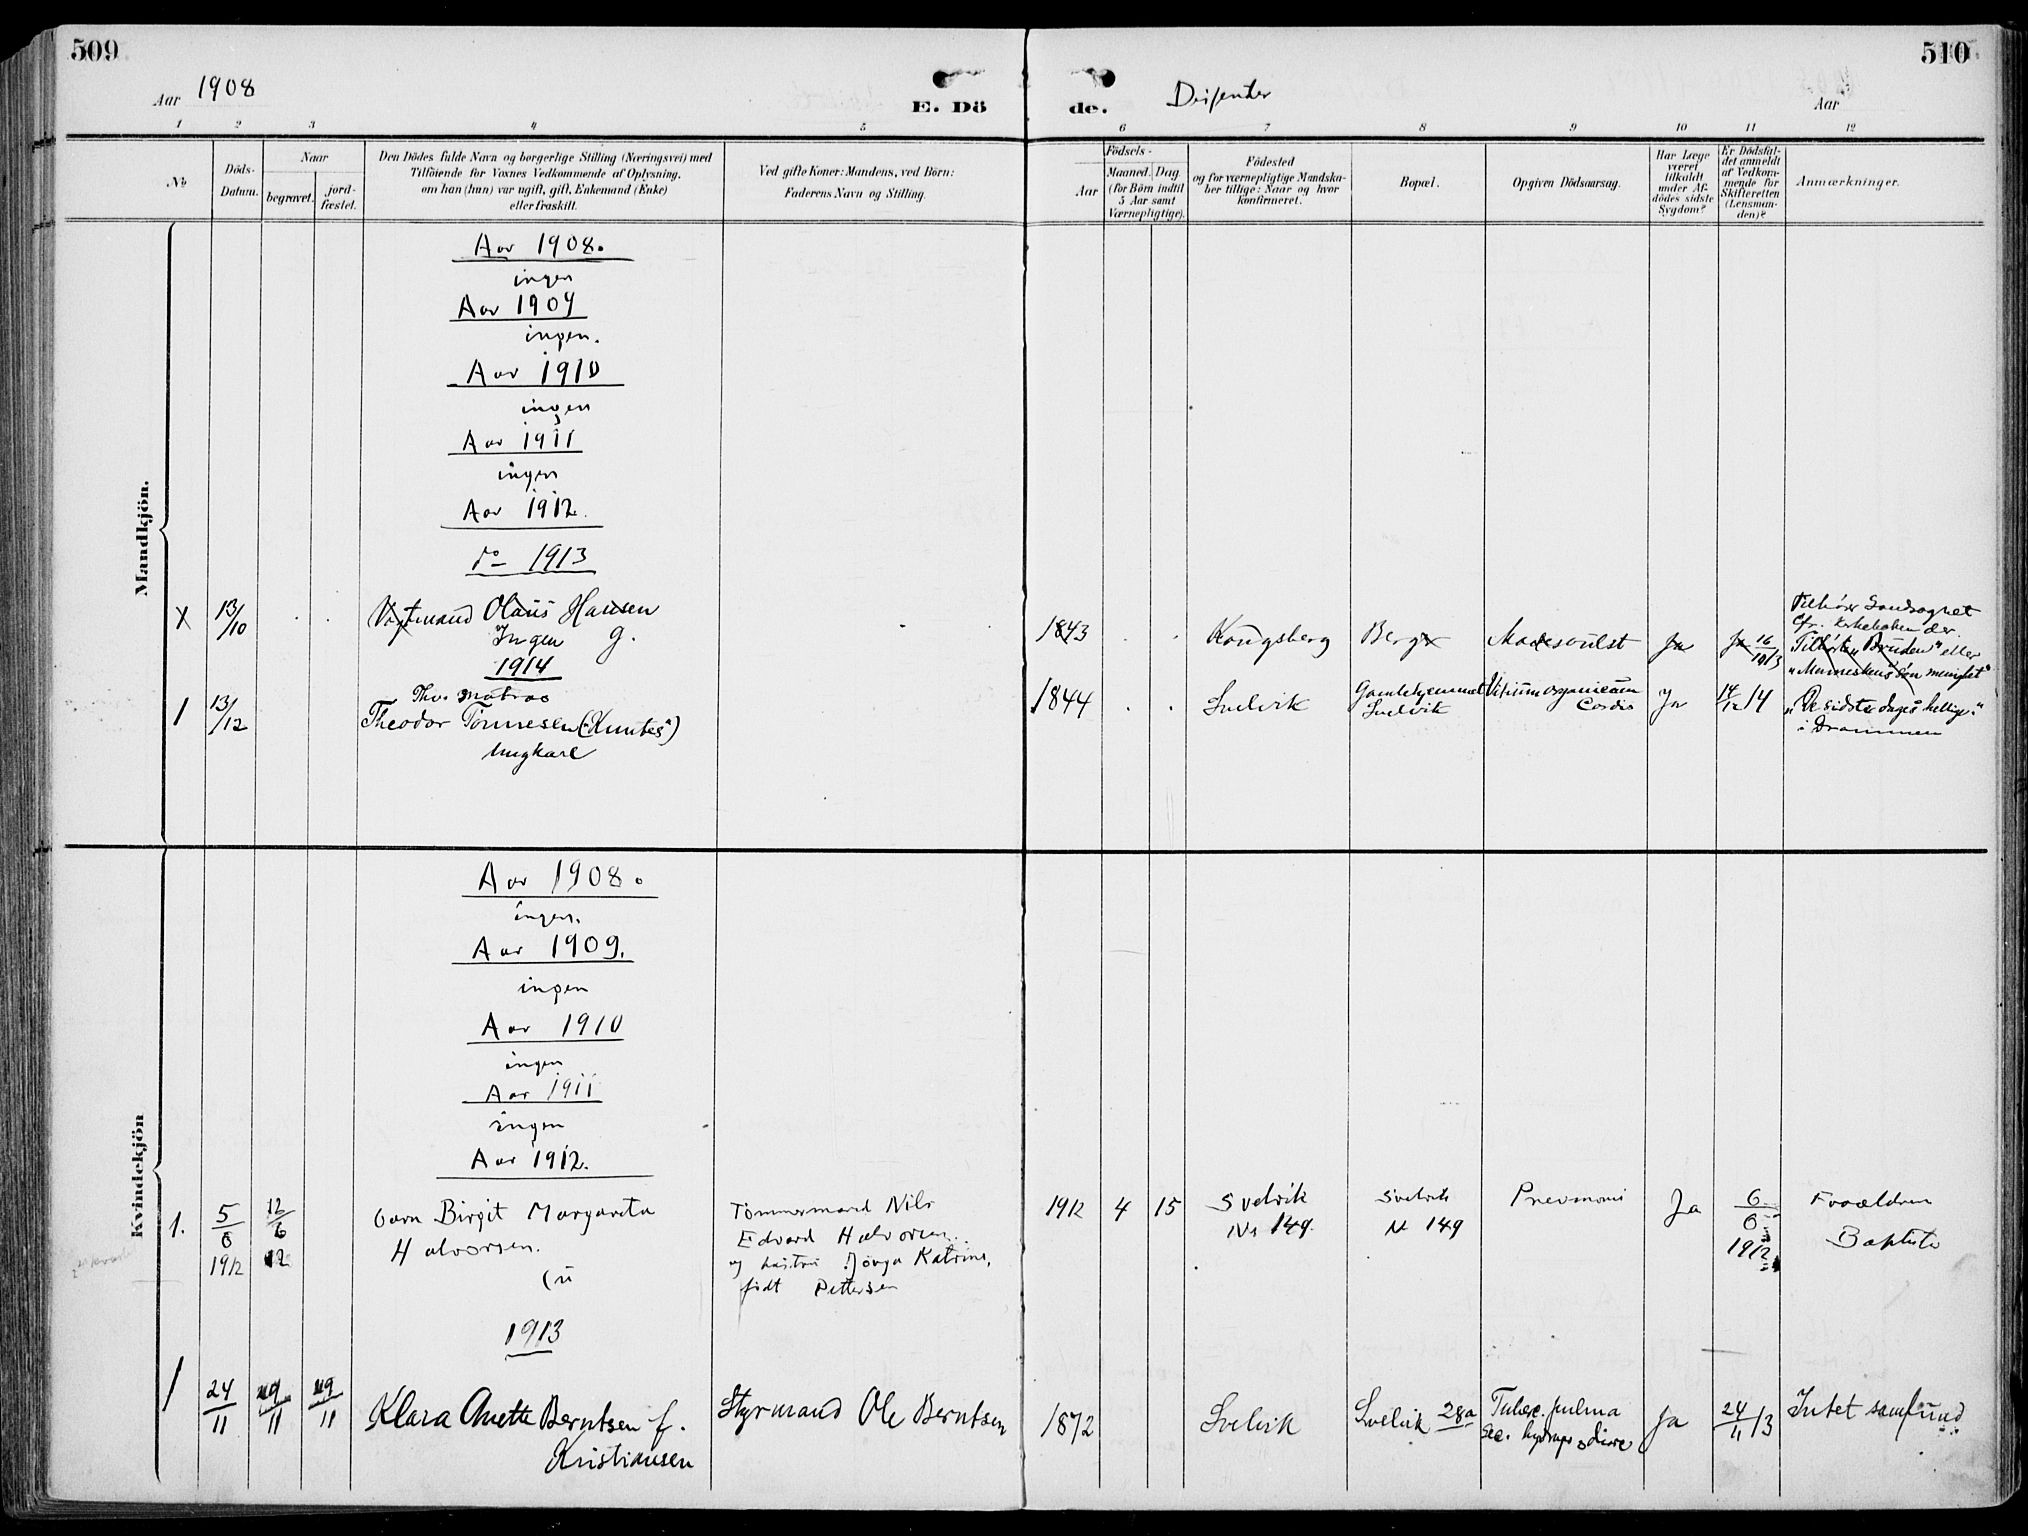 509
510
Aar 1908
E. Dö
de.
Disenter
Aar
1 2 3 4 5 6 7 8 9 10 11 12
No
Döds-Datum.
Naar
begravet.
jord-fæstet.
Den Dödes fulde Navn og borgerlige Stilling (Næringsvei) med
Tilföiende for Voxnes Vedkommende af Oplysning,
om han (hun) var ugift, gift, Enkemand (Enke)
eller fraskilt.
Ved gifte Koner: Mandens, ved Börn:
Faderens Navn og Stilling.
Födsels-
Aar
Maaned. Dag
(for Börn indtil
5 Aar samt
Værnepligtige).
Födested
og for værnepligtige Mandska-
ber tillige: Naar og hvor
konfirmeret.
Bopæl.
Opgiven Dödsaarsag.
Har Læge
været
tilkaldt
under Af-
dödes sidste
Sygdom?
Er Dödsfal-
det anmeldt
af Vedkom-
mende for
Skifteretten
(Lensman-
den)?
Anmærkninger.
Mandkjön.
Aar 1908.
ingen
Aar 1909
ingen.
Aar 1910
ingen
Aar 1911
ingen
Aar 1912.
do 1913
x 13/10 Vagtmand Olaus Hansen g. 1843 Kongsberg Berg Mavesvulst Ja Ja 16/10 13
Tilhører Landsognet
cfr. Kirkeboken der.
Tilhørte "Bruden" eller
"Menneskens søn menighet"
Ingen
1914
1 13/12 Thv. Matros
Theodor Tønnesen ("Kuntes")
Ungkarl
1844 Svelvik Gamlehjemmet Svelvik Vitium organicum Cordis Ja 14/12 14
"De sidste dages hellige."
i Drammen
Kvindekjön
Aar 1908.
ingen.
Aar 1909.
ingen
Aar 1910
ingen
Aar 1911
ingen
Aar 1912.
1. 5/6 1912 12/6 12 barn Birgit Margareta
Halvorsen.
Tømmermand Nils
Edvard Halvorsen
og hustru Katrine,
født Pettersen
1912 4 15 Svelvik No 149. Svelvik No 149 Pnevmoni Ja 6/6 1912 Forældrene
Baptister
1913
1 24/11 29/11 29/11 Klara Anette Berntsen f.
Kristiansen
Styrmand Ole Berntsen 1872 Svelvik Svelvik 28a Tuberc. pulma Ja 24/11 13 Intet samfund